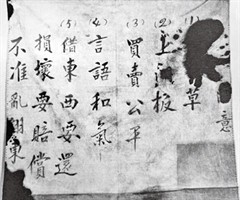 意
(1) 草
(2) 上門板
(3) 買賣公平
(4) 言語和氣
(5) 借東西要還
損壞要賠償
不准亂翻東